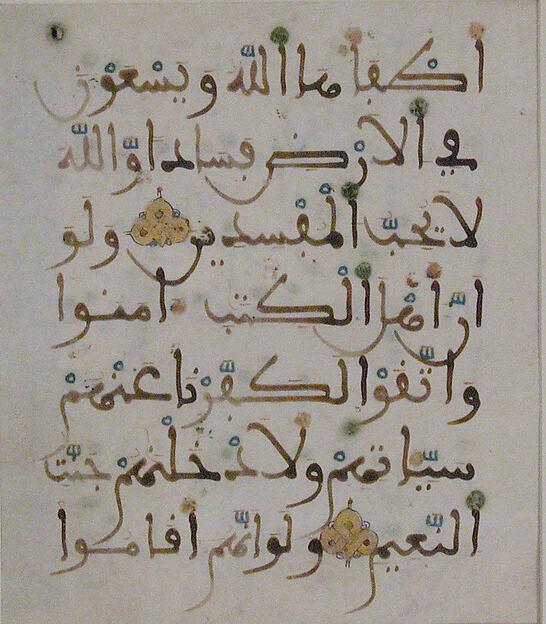 أطفأها اللّه ويسعون
في الأرض فسادا واللّه
لا يحبّ المفسدين ولو
أنّ أهل الكتب ءامنوا
واتّقوا لكفّرنا عنهم
سيّئاتهم ولأدخلنهم جنّت
النّعيم ولو أنّهم أقاموا